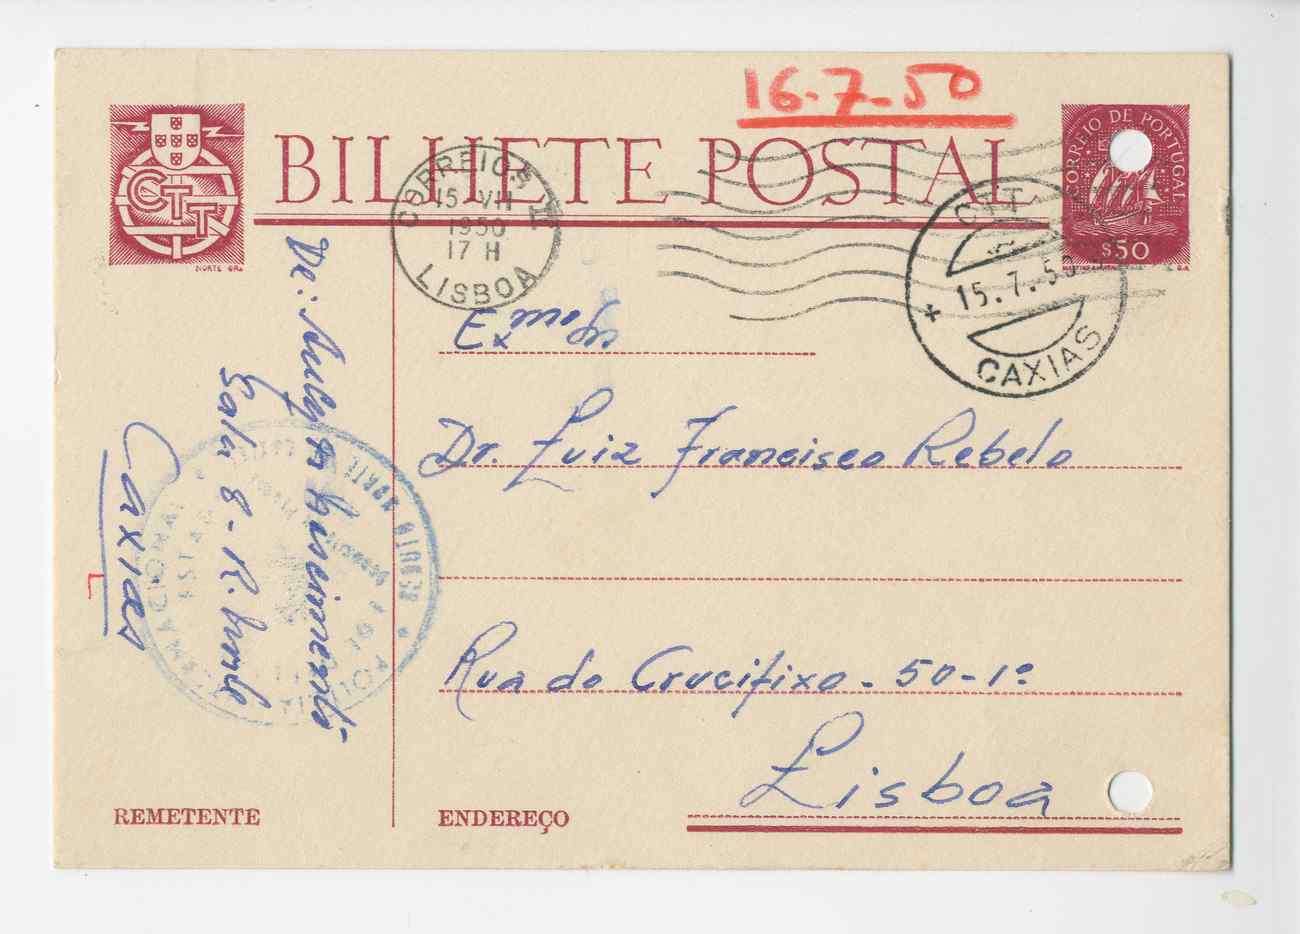 16-7-50
BILHETE POSTAL
CTT
NORTE GRª
CORREIO DE PORTUGAL
$50
CORREIOS
15 VII
1950
17 H
LISBOA
CTT
15.7.50
CAXIAS
Exmo Sr
Dr. Luiz Francisco Rebelo
Rua do Crucifixo - 50-1º
Lisboa
De:
Sala 8 - R. Norte
Caxias
REMETENTE
ENDEREÇO